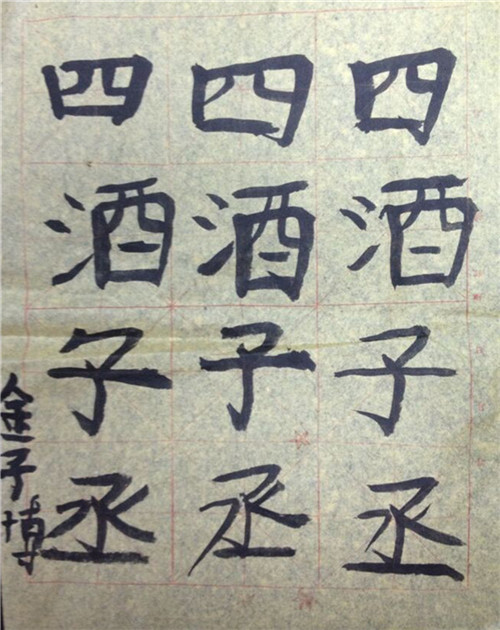 四酒子丞
四酒子丞
四酒子丞
金子博